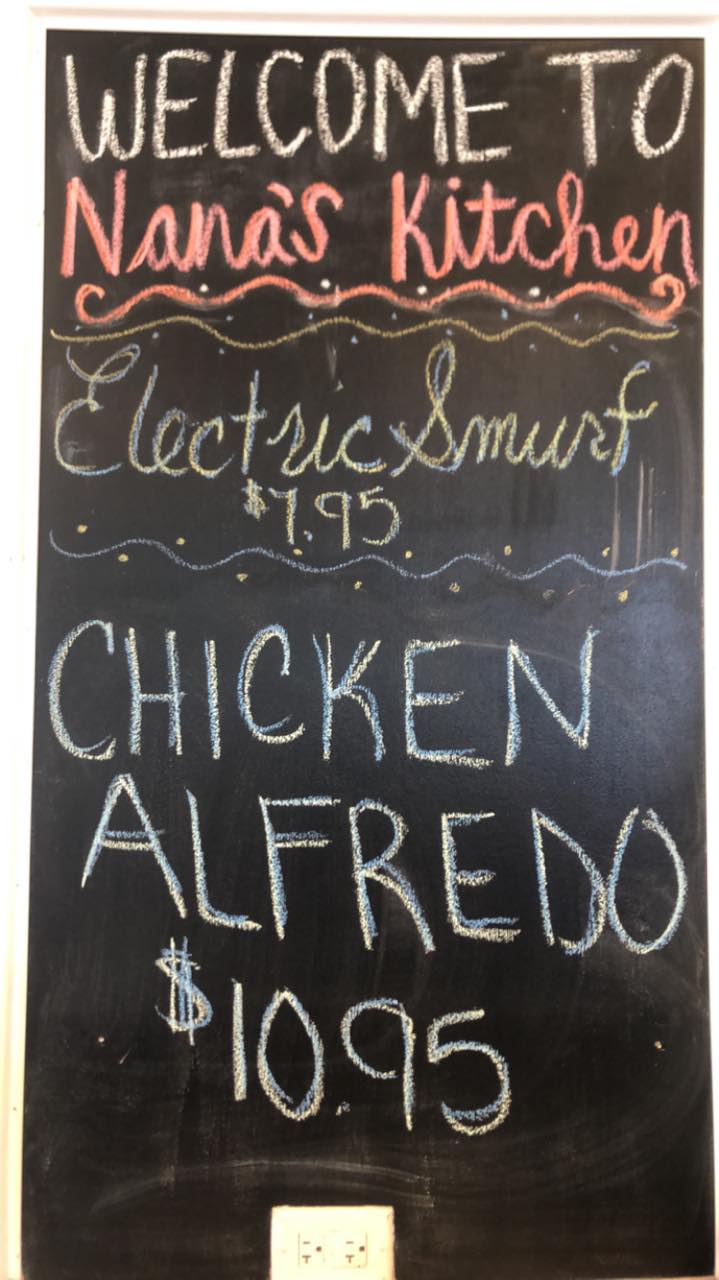 WELCOME TO
Nana's Kitchen
Electric Smurf
$7.95
CHICKEN
ALFREDO
$10.95